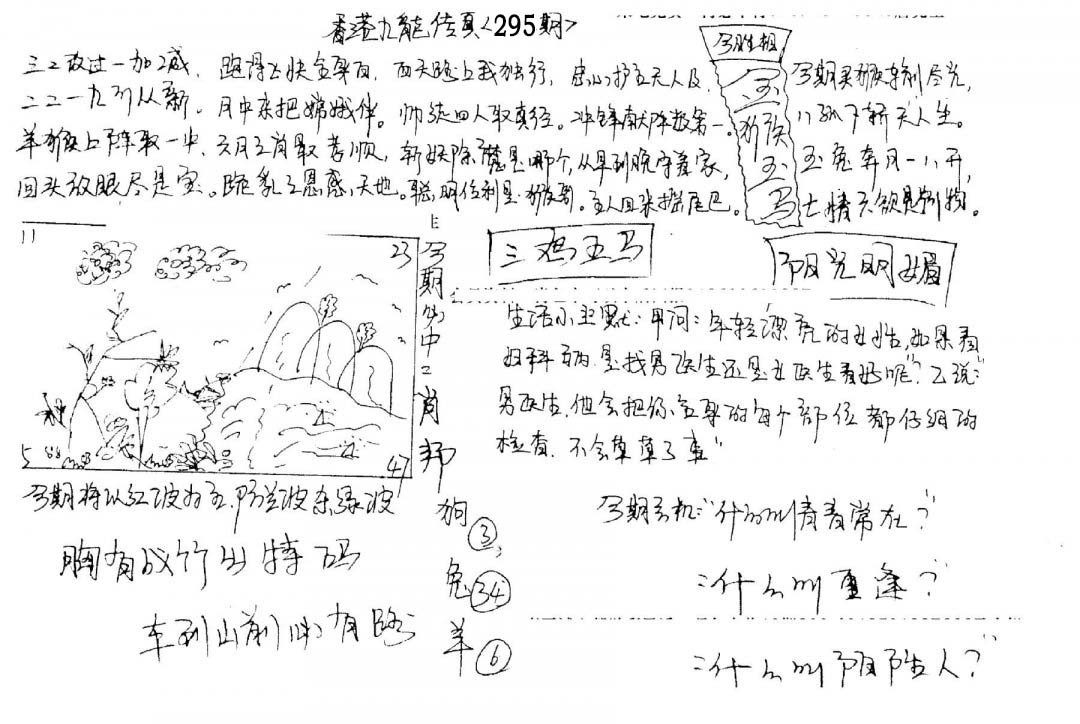 香港九龙传真<295期>
三二改过一加减，跑得飞快全莫首，西天路上我独行，忠心护主无人及，
二二一九列从新。月中来把嫦娥伴。师徒四人取真经。冲锋献阵数第一。
羊猴上阵取一半，六月三肖最孝顺，斩妖除魔是哪个，从早到晚守着家，
回头放眼尽是宝。跪乳之恩感天地。聪明伶利是猴哥。主人回来摇尾巴。
今胜相
玉猴玉马
玉兔奔月一八开，
11
23
5
47
今期必中二肖邦
狗③，
兔㉞
羊⑥
三鸡五马
阳光明媚
生活小幽默：甲问：年轻漂亮的女性，如果看
妇科病，是找男医生还是女医生看好呢？乙说：
男医生，他会把你全身的每个部位都仔细的
检查，不会草草了事"
今期将以红波为主，防兰波杀绿波
胸有成竹出特码
车到山前必有路
今期玄机："什么叫青春常在？"
：什么叫重逢？"
：什么叫阴阳人？"